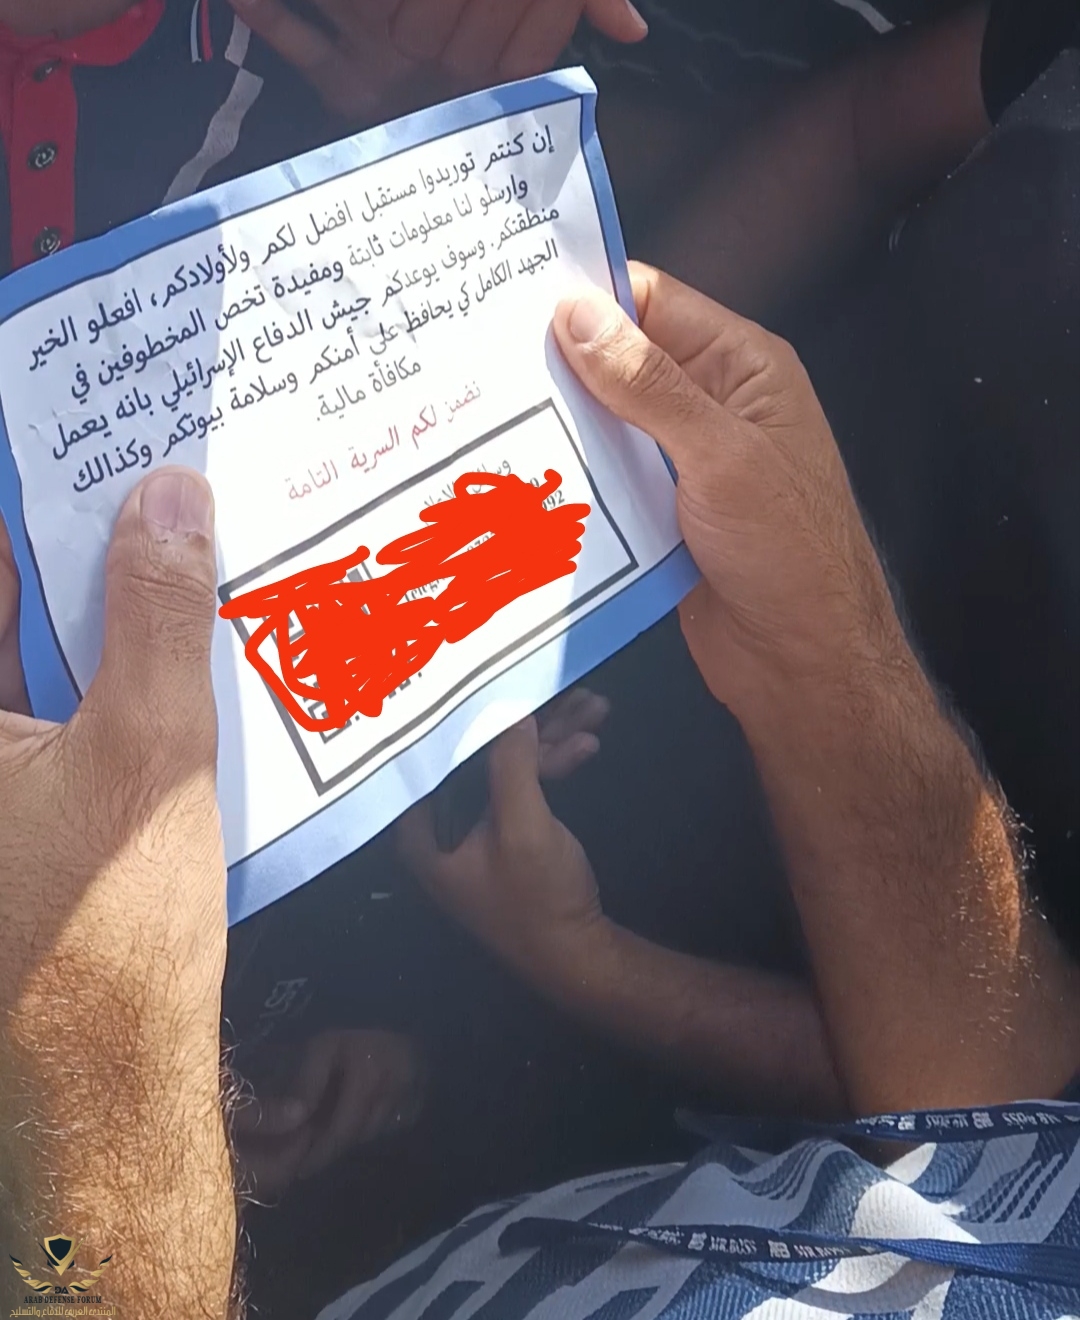 إن كنتم توريدوا مستقبل افضل لكم ولأولادكم، افعلو الخير
وارسلو لنا معلومات ثابتة ومفيدة تخص المخطوفين في
منطقتكم. وسوف يوعدكم جيش الدفاع الإسرائيلي بانه يعمل
الجهد الكامل كي يحافظ على أمنكم وسلامة بيوتكم وكذالك
مكافأة مالية.
نضمن لكم السرية التامة
ARAB DEFENSE FORUM
المنتدى العربي للدفاع والتسليح